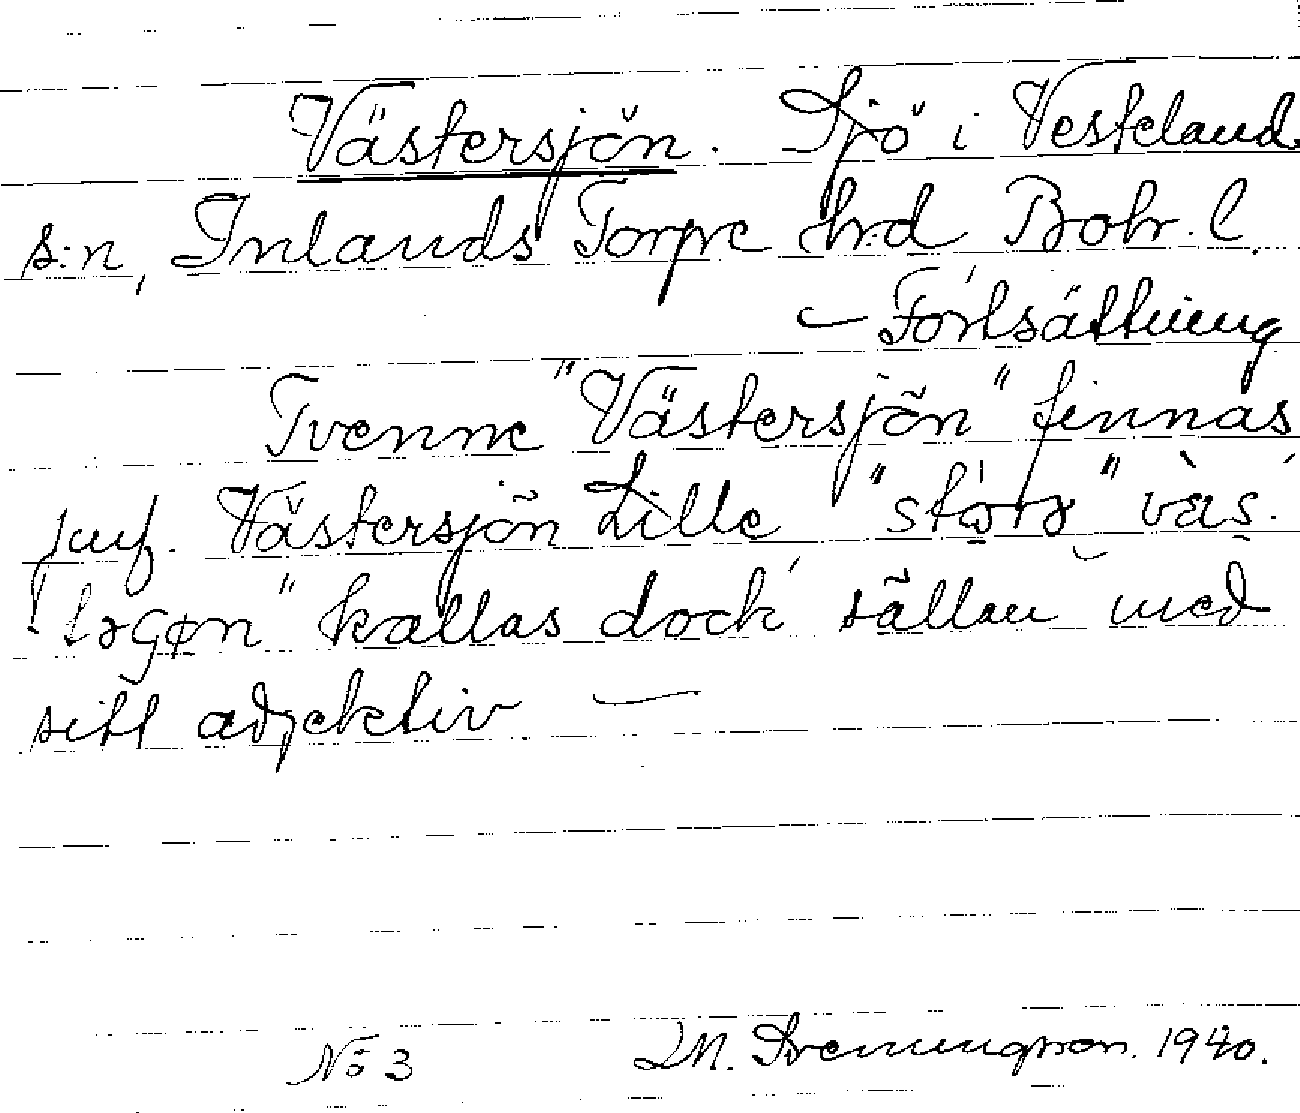 Västersjön. Sjö i Vesteland
s:n, Inlands Torpe h:d Boh. l.
— Fortsättning
Tvenne "Västersjön" finnas
jmf. Västersjön Lille "stora" väs-
kallas dock sällan med
sitt adjektiv —
No 3 M. 1940.